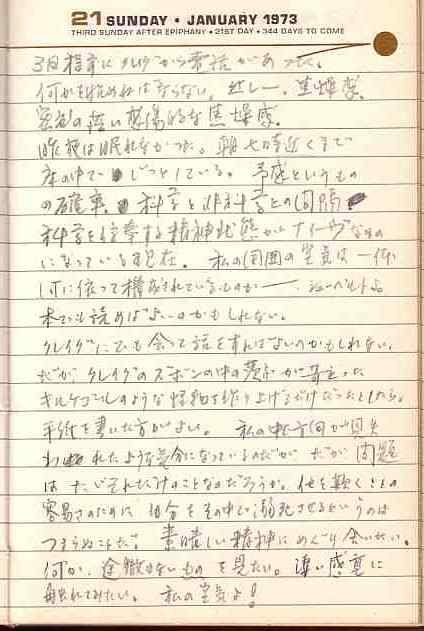 21 SUNDAY • JANUARY 1973
THIRD SUNDAY AFTER EPIPHANY • 21ST DAY • 344 DAYS TO COME
クレイグから電話があった。
何かを ねばならない。 焦燥感。
感傷的な焦燥感。
昨夜は眠れなかった。朝七時近くまで
床の中でじっとしている。予感というもの
の確率、科学と非科学との間隔
科学を信奉する精神状態がナイーヴなもの
になっている現在。私の周囲の空気は一体
何に依って構成されているものか—
本でも読めばよいのかもしれない。
クレイグにでも会って話をすればよいのかもしれない。
だが、クレイグのズボンの中の
キルケゴールのような怪物を作り上げるだけだったとしたら、
手紙を書いた方がよい。私の中で方向が見失
われたような気分になっているのだが、だが問題
はただそれだけのことなのだろうか。他を欺くことの
容易さのために自分をその中で溺死させるというのは
つまらぬことだ。素晴しい精神にめぐり会いたい。
何か、途徹もないものを見たい。凄い感覚に
触れてみたい。私の空気よ!